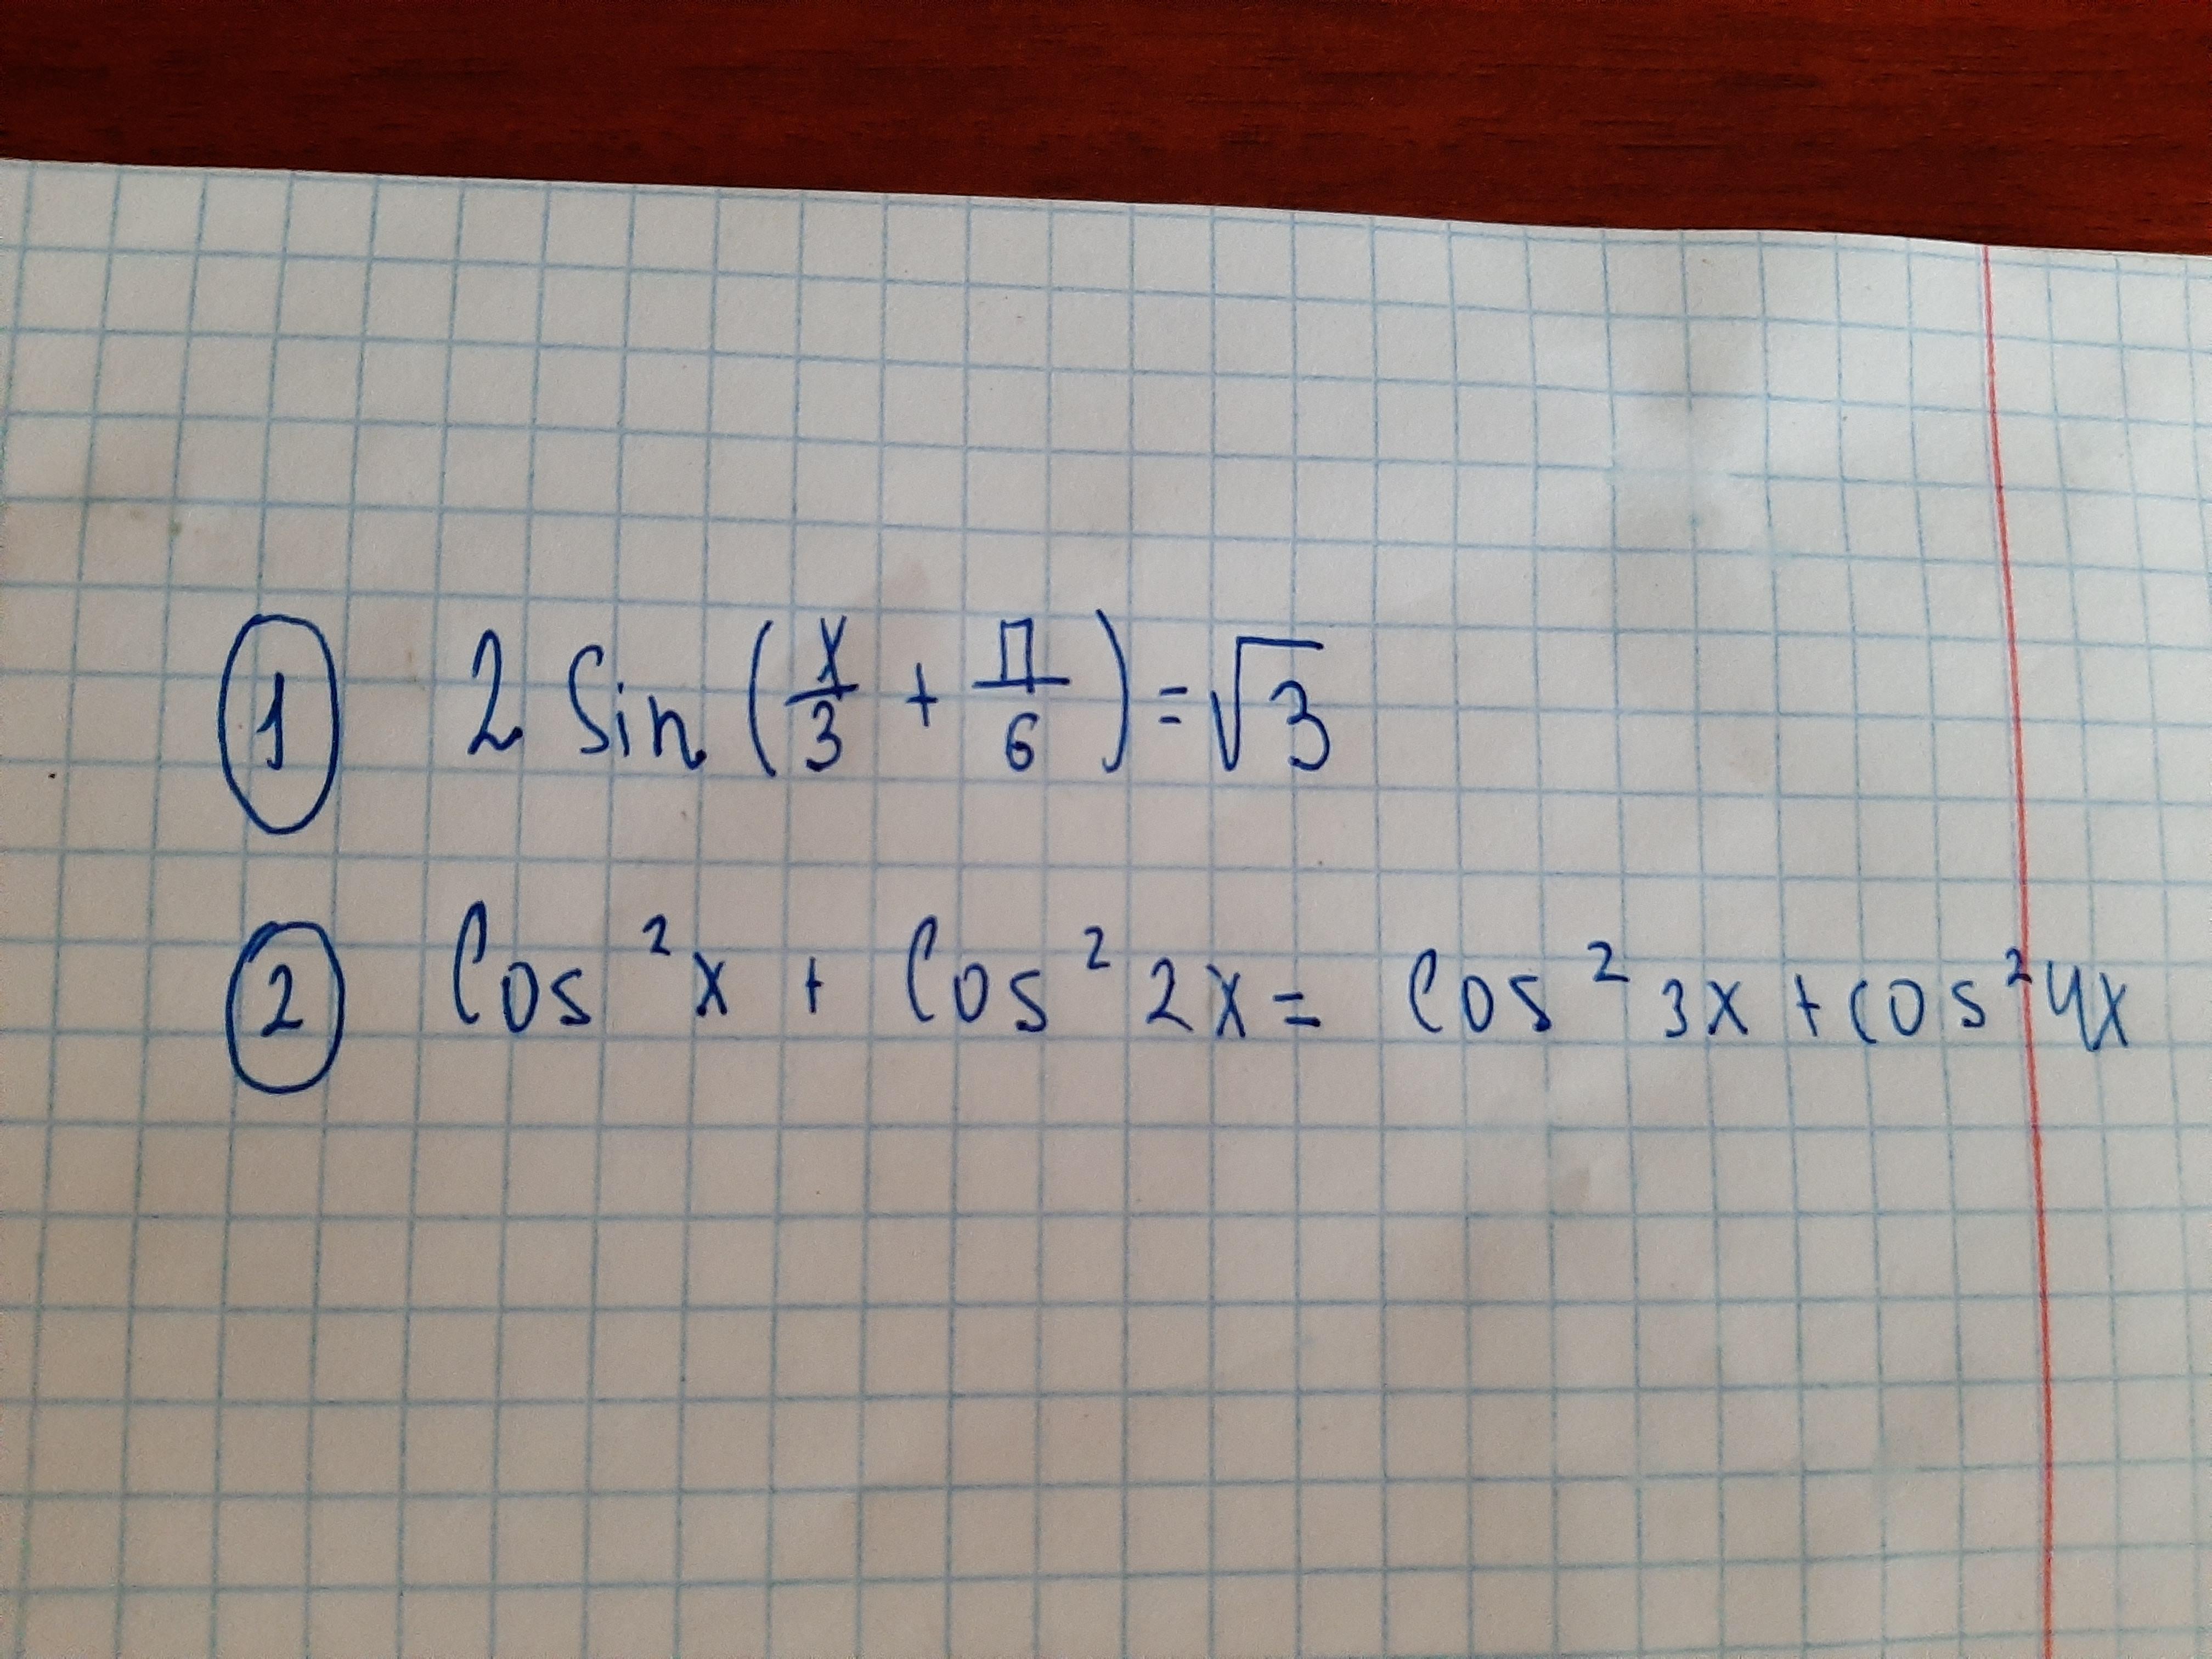 ① 2 Sin (x/3 + П/6) = √3
② Cos²x + Cos²2x = Cos²3x + cos²4x